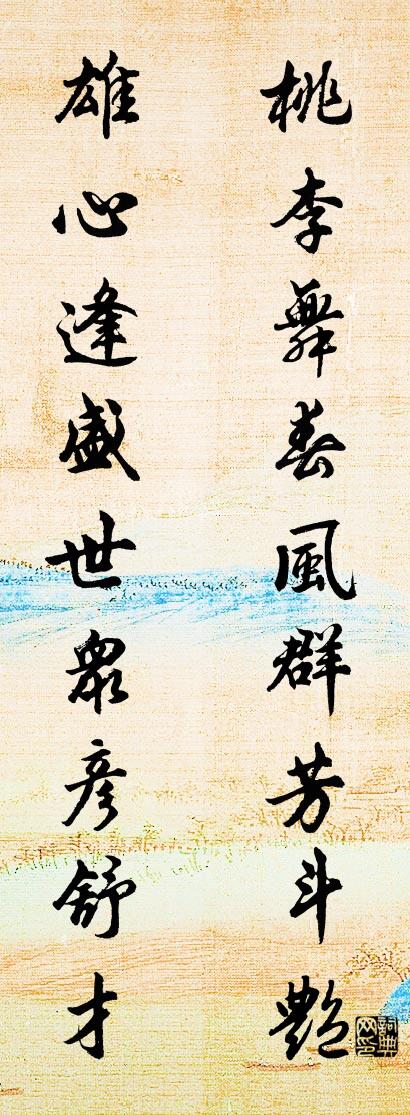 桃李舞春風群芳斗艷
雄心逢盛世衆彦舒才